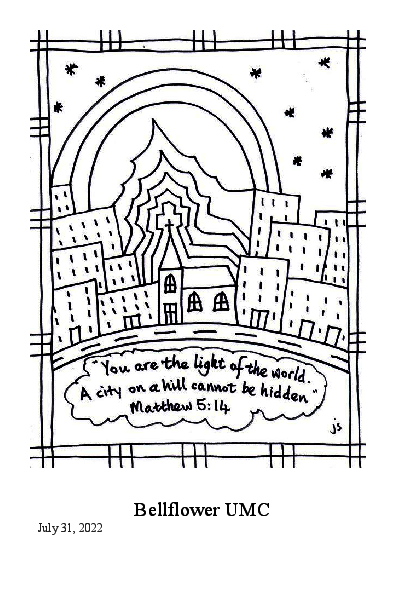 "You are the light of the world.
A city on a hill cannot be hidden"
Matthew 5:14
js
Bellflower UMC
July 31, 2022